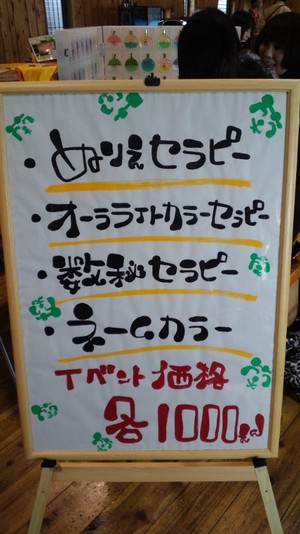 ・ぬりえセラピー
・オーラライトカラーセラピー
・数秘セラピー
・ネームカラー
イベント価格
各1000円